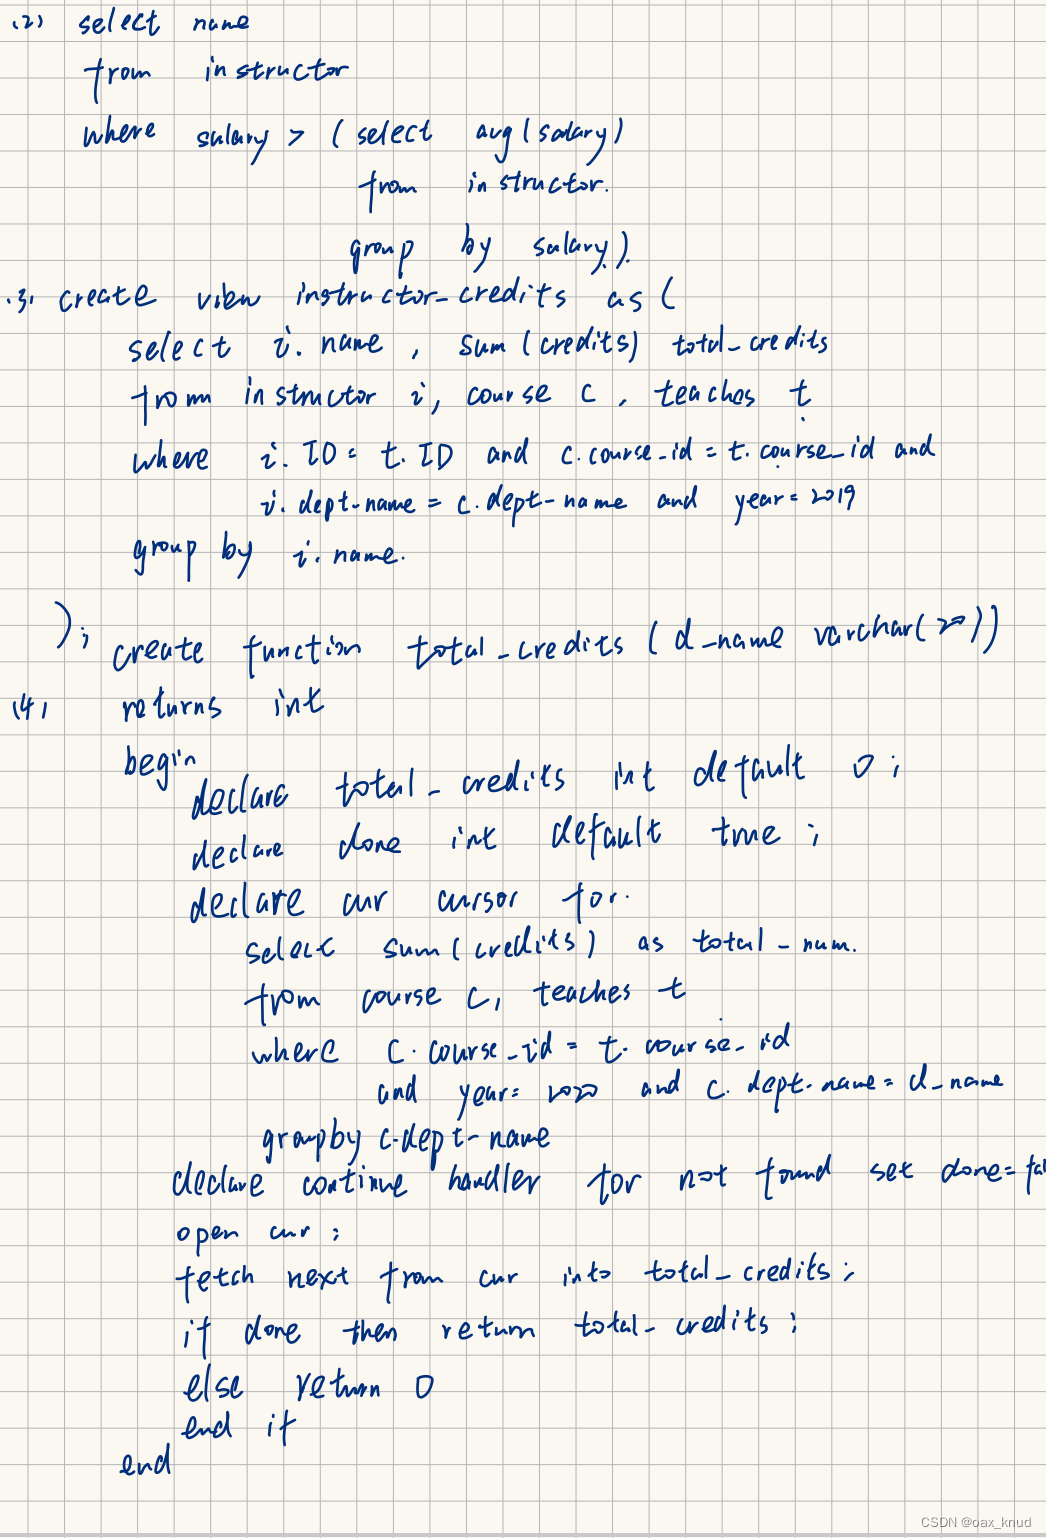 (2) select name
from instructor
where salary > (select avg(salary)
from instructor.
group by salary).
(3) create view instructor_credits as (
select i.name, sum(credits) total_credits
from instructor i, course c, teaches t
where i.ID = t.ID and c.course_id = t.course_id and
i.dept-name = c.dept-name and year = 2019
group by i.name.
);
create function total_credits (d_name varchar(20))
(4) returns int
begin
declare total_credits int default 0;
declare done int default true;
declare cur cursor for.
select sum(credits) as total_num.
from course c, teaches t
where c.course_id = t.course_id
and year = 2020 and c.dept-name = d_name
group by c.dept-name
declare continue handler for not found set done = fal
open cur;
fetch next from cur into total_credits;
if done then return total_credits;
else return 0
end if
end
CSDN @oax_knud